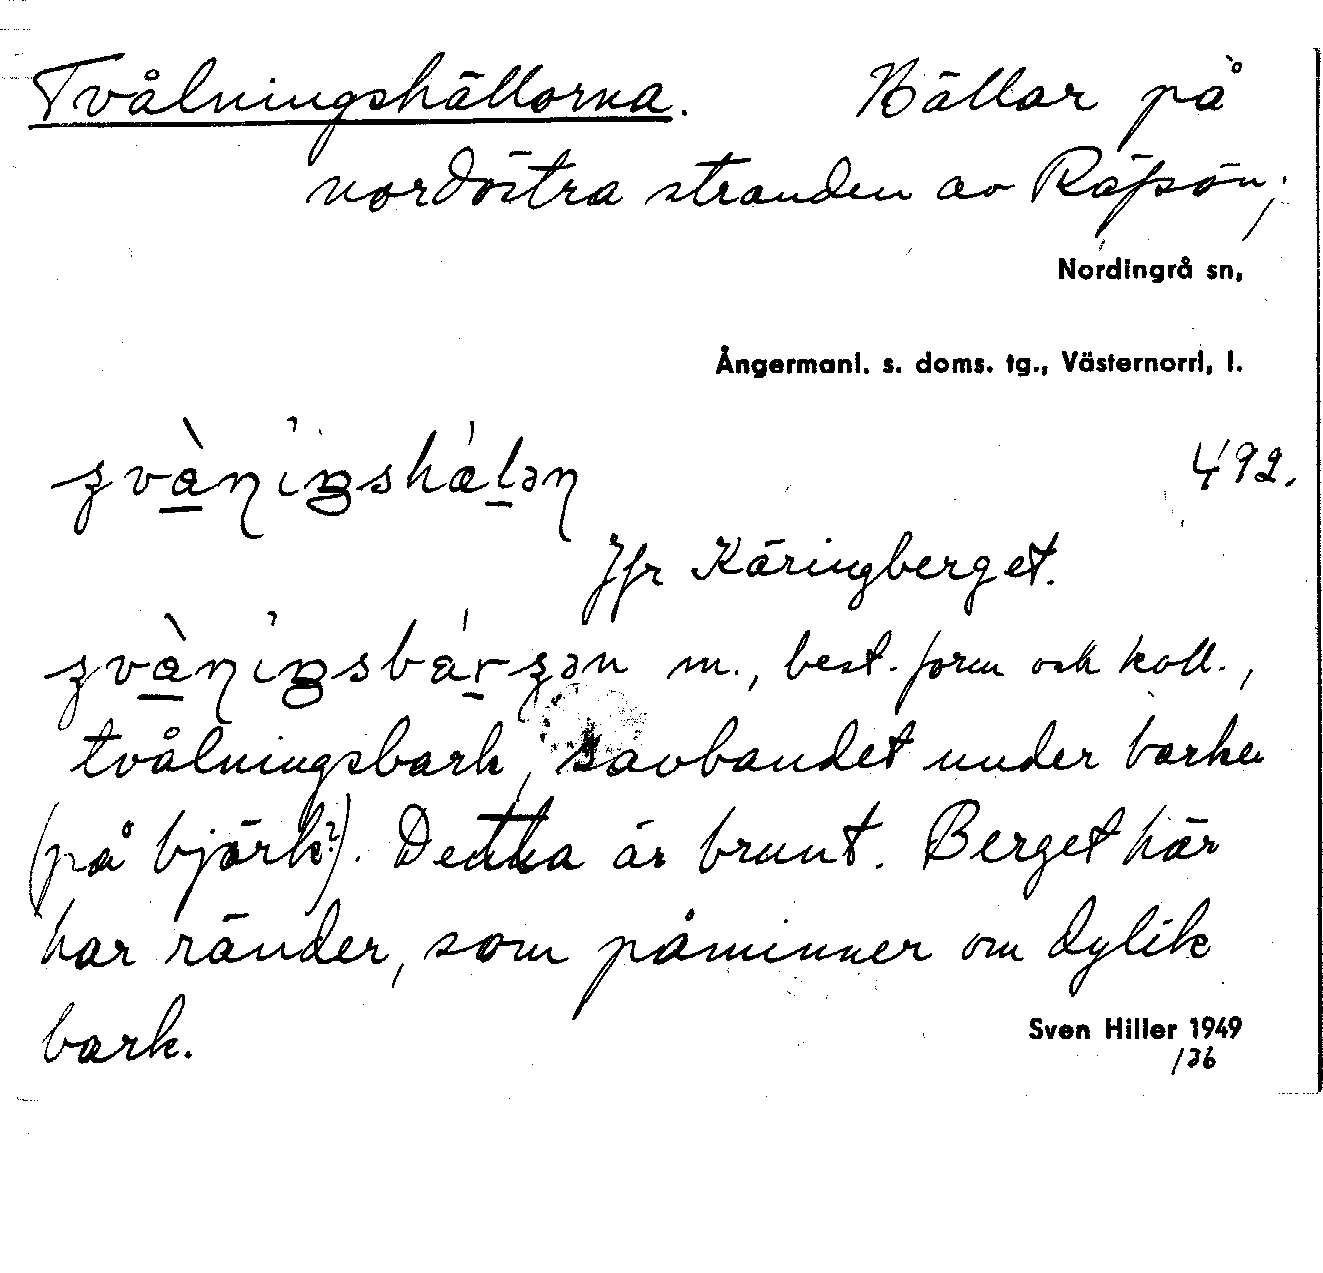 Tvålningshällorna. Hällar på
nordöstra stranden av Räfsön,
Nordingrå sn,
Ångermanl. s. doms. tg., Västernorrl. l.
492.
Jfr Käringberget.
m., best. form och koll.,
tvålningsbark, savbandet under barken
(på björk?). Denna är brunt. Berget här
har ränder, som påminner om dylik
bark.
Sven Hiller 1949
136